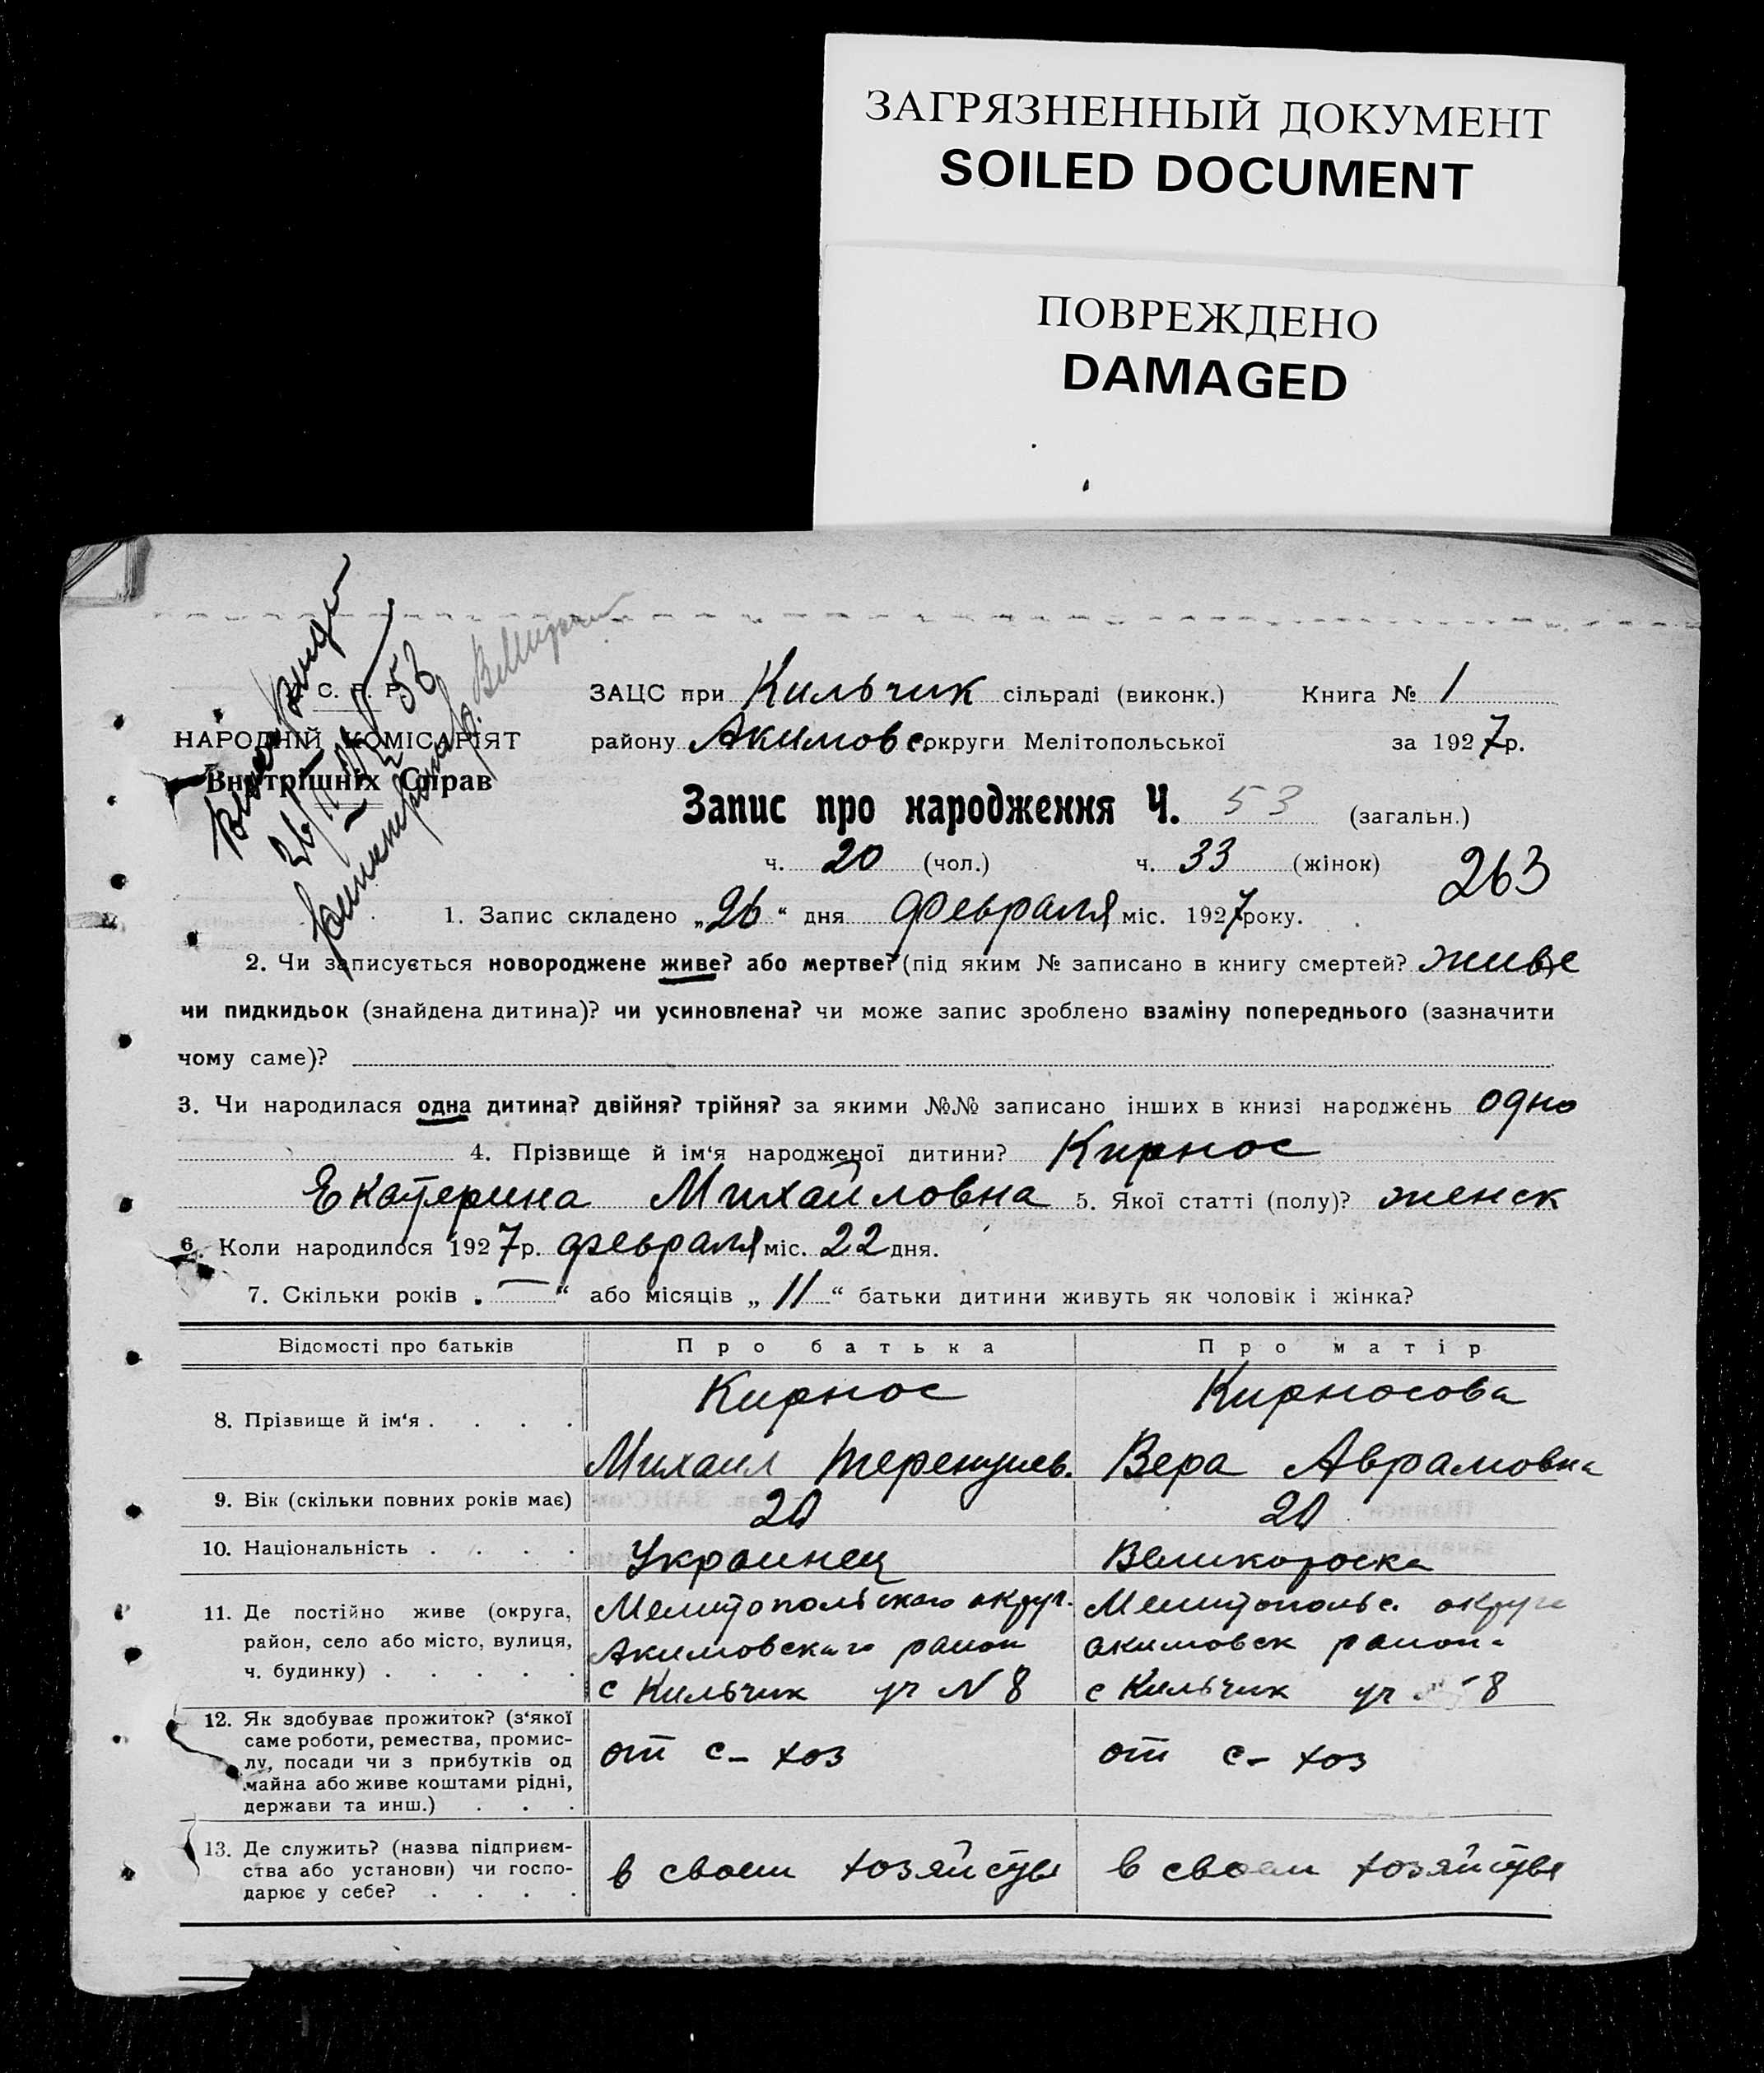 ЗАГРЯЗНЕННЫЙ ДОКУМЕНТ
SOILED DOCUMENT
ПОВРЕЖДЕНО
DAMAGED
С. Р. Р.
НАРОДНІЙ КОМІСАРІЯТ
Внутрішніх Справ
ЗАЦС при Кильчик сільраді (виконк.) Книга № 1
району Акимовс. округи Мелітопольської за 1927 р.
Запис про народження Ч. 53 (загальн.)
ч. 20 (чол.) ч. 33 (жінок)
263
1. Запис складено „26“ дня февраля міс. 1927 року.
2. Чи записується новороджене живе? або мертве? (під яким № записано в книгу смертей? живе
чи пидкидьок (знайдена дитина)? чи усиновлена? чи може запис зроблено взаміну попереднього (зазначити
чому саме)?
3. Чи народилася одна дитина? двійня? трійня? за якими №№ записано інших в книзі народжень одно
4. Прізвище й ім‘я народженої дитини? Кирнос
Екатерина Михайловна 5. Якої статті (полу)? женск
6. Коли народилося 1927 р. февраля міс. 22 дня.
7. Скільки років „—“ або місяців „11“ батьки дитини живуть як чоловік і жінка?
Відомості про батьків Про батька Про матір
8. Прізвище й ім‘я . . . .
Кирнос Кирносова
Михаил Терентиев. Вера Аврамовна
9. Вік (скільки повних років має) 20 20
10. Національність . . . . Украинец Великороска
11. Де постійно живе (округа,
район, село або місто, вулиця,
ч. будинку) . . . . .
Мелитопольского округ. Мелитопольс. округа
Акимовского район акимовск район.
с Кильчик уч N 8 с Кильчик уч 8
12. Як здобуває прожиток? (з‘якої
саме роботи, ремества, промис-
лу, посади чи з прибутків од
майна або живе коштами рідні,
держави та инш.) . . .
от с-хоз от с-хоз
13. Де служить? (назва підприєм-
ства або установи) чи госпо-
дарює у себе? . . . .
в своем хозяйстве в своем хозяйстве